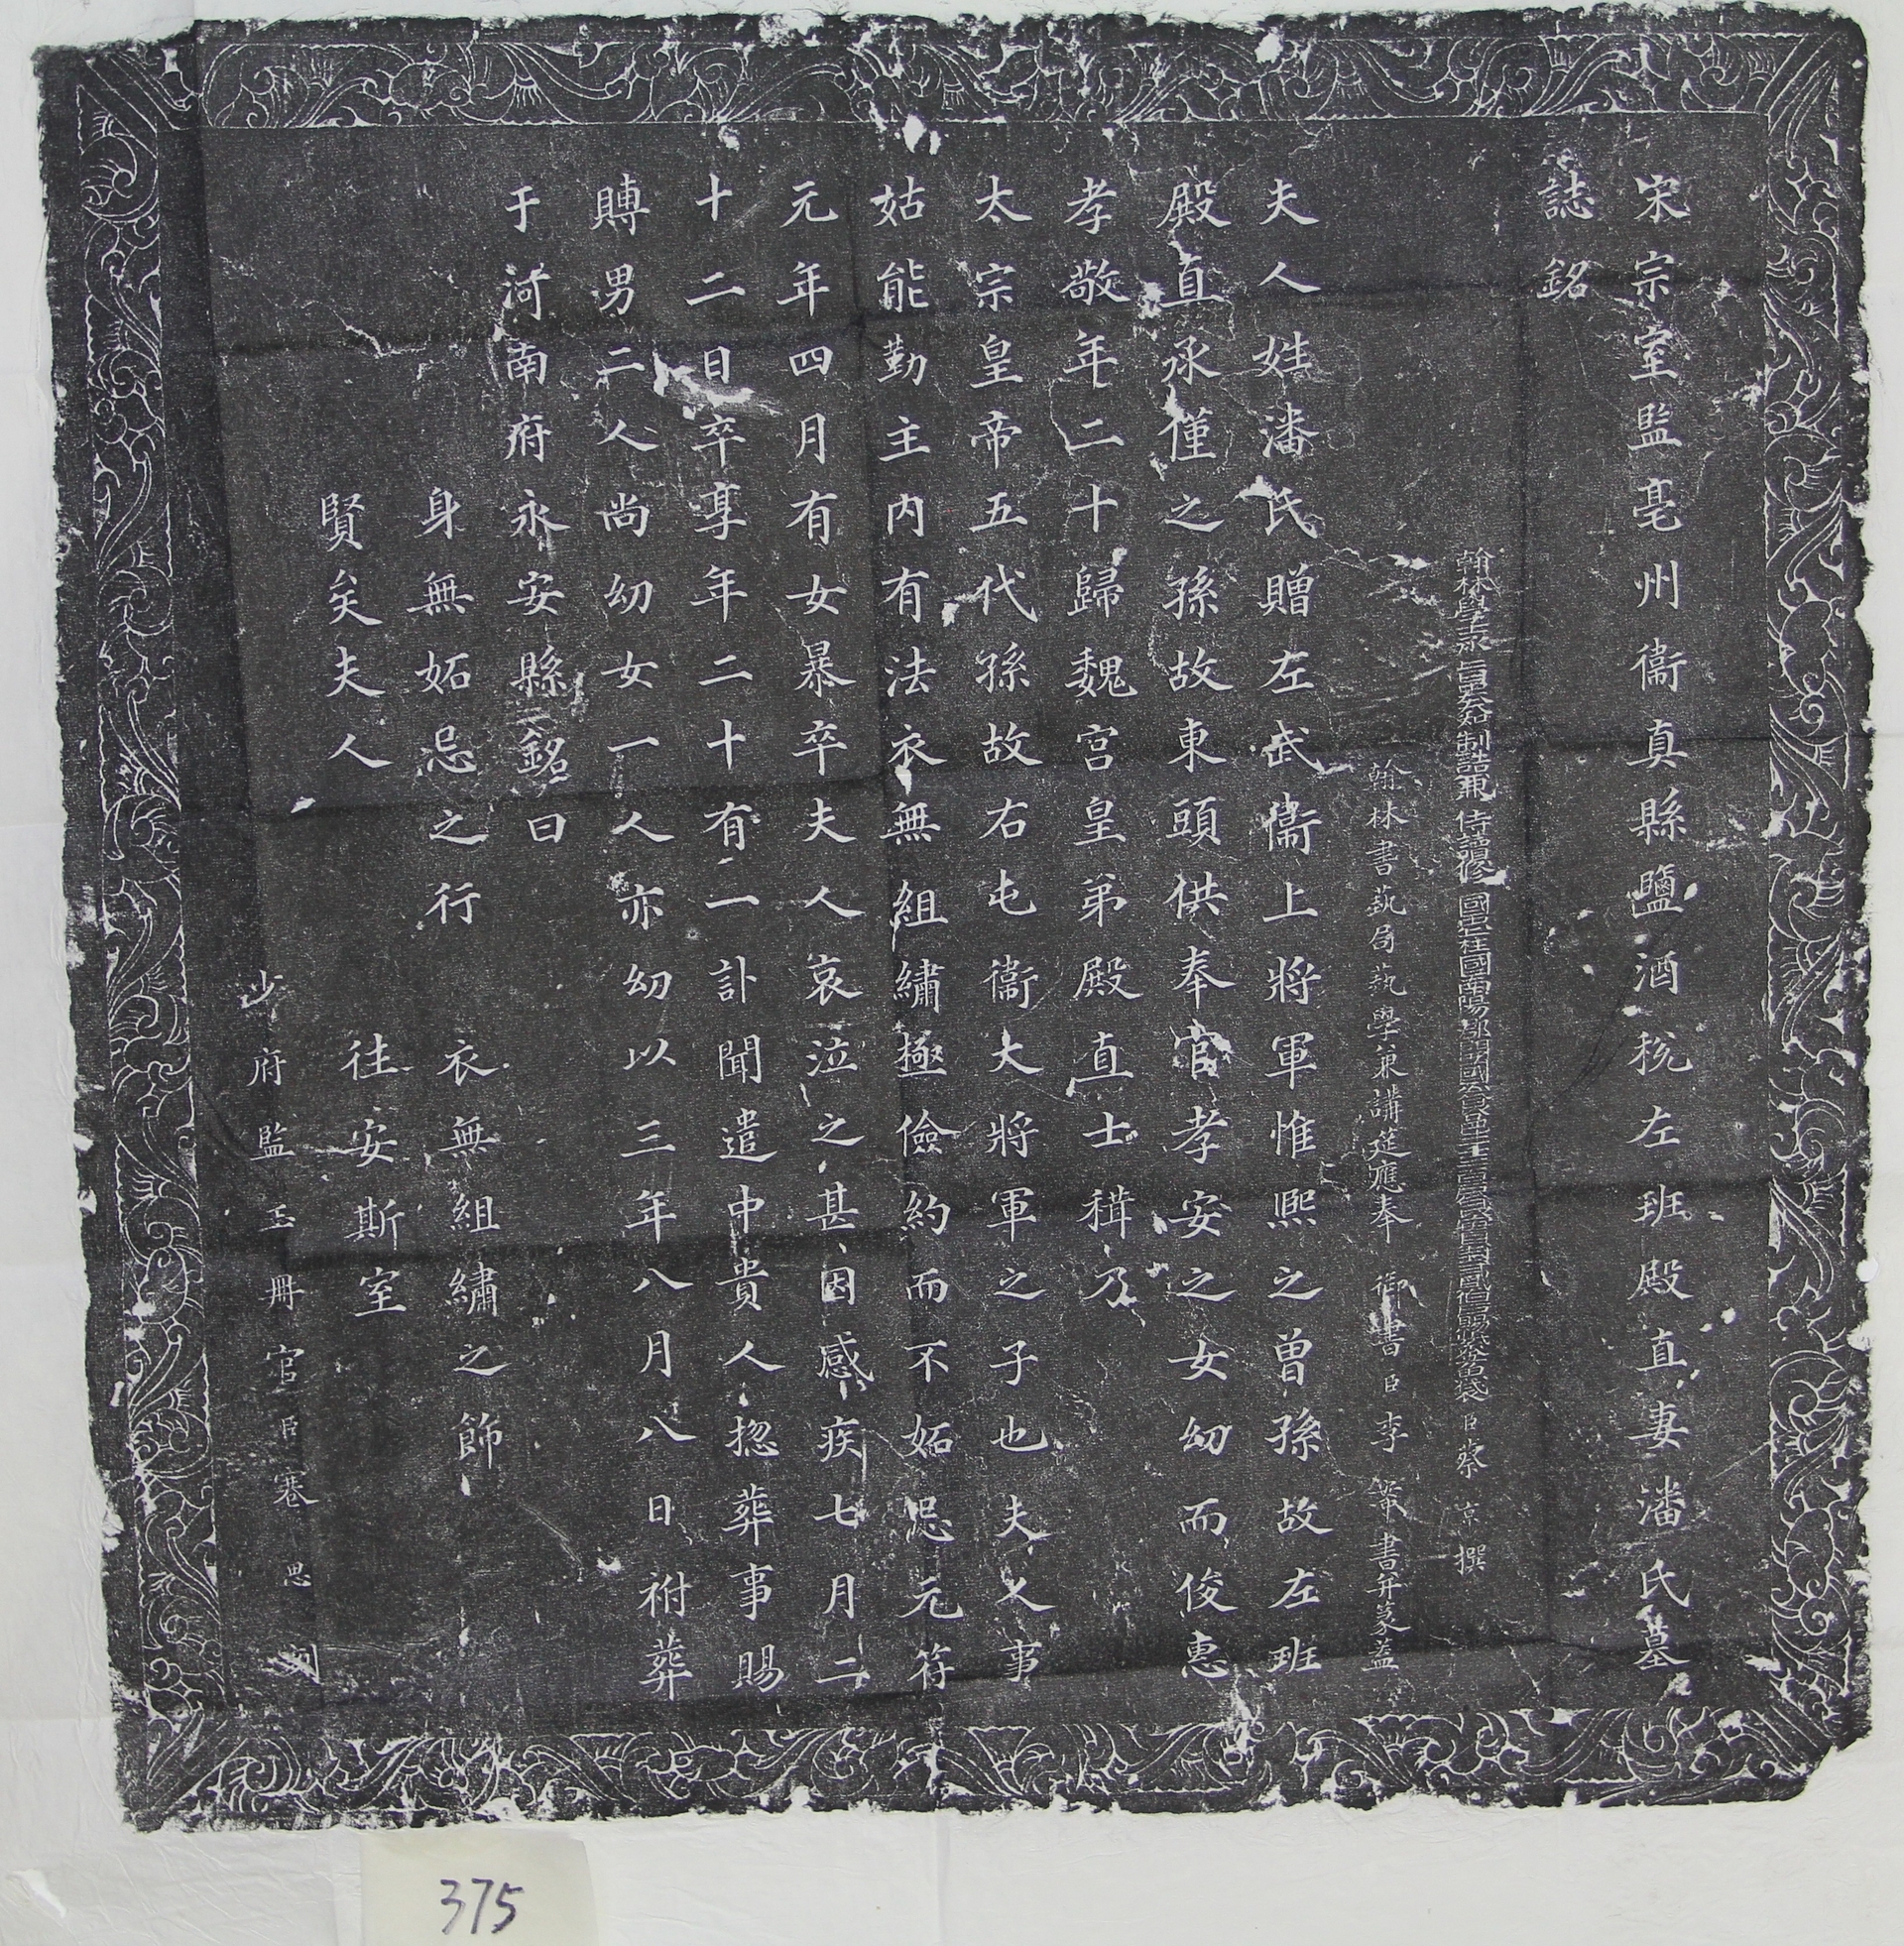 宋宗室監亳州衞真縣鹽酒稅左班殿直妻潘氏墓
誌銘
翰林學士承旨知制誥兼侍讀修國史上柱國南陽郡開國公食邑 臣蔡京撰
翰林書藝局藝學兼講筵應奉 御書臣李 書并篆蓋
夫人姓潘氏贈左武衞上將軍惟熙之曾孫故左班
殿直承僅之孫故東頭供奉官孝安之女幼而俊惠
孝敬年二十歸魏宮皇弟殿直士穳乃
太宗皇帝五代孫故右屯衞大將軍之子也夫人事
姑能勤主內有法衣無組繡極儉約而不妬忌元符
元年四月有女暴卒夫人哀泣之甚因感疾七月二
十二日卒享年二十有二訃聞遣中貴人揔葬事賜
賻男二人尚幼女一人亦幼以三年八月八日祔葬
于河南府永安縣銘曰
身無妬忌之行 衣無組繡之飾
賢矣夫人 往安斯室
少府監玉冊官臣蹇思刻
375